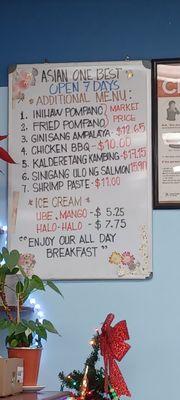 ASIAN ONE BEST
OPEN 7 DAYS
ADDITIONAL MENU:
1. INIHAW POMPANO } MARKET
2. FRIED POMPANO } PRICE
3. GINISANG AMPALAYA - $12.65
4. CHICKEN BBQ - $10.00
5. KALDERETANG KAMBING - $17.15
6. SINIGANG ULO NG SALMON
7. SHRIMP PASTE - $11.00
ICE CREAM
UBE, MANGO - $5.25
HALO-HALO - $7.75
"ENJOY OUR ALL DAY
BREAKFAST"